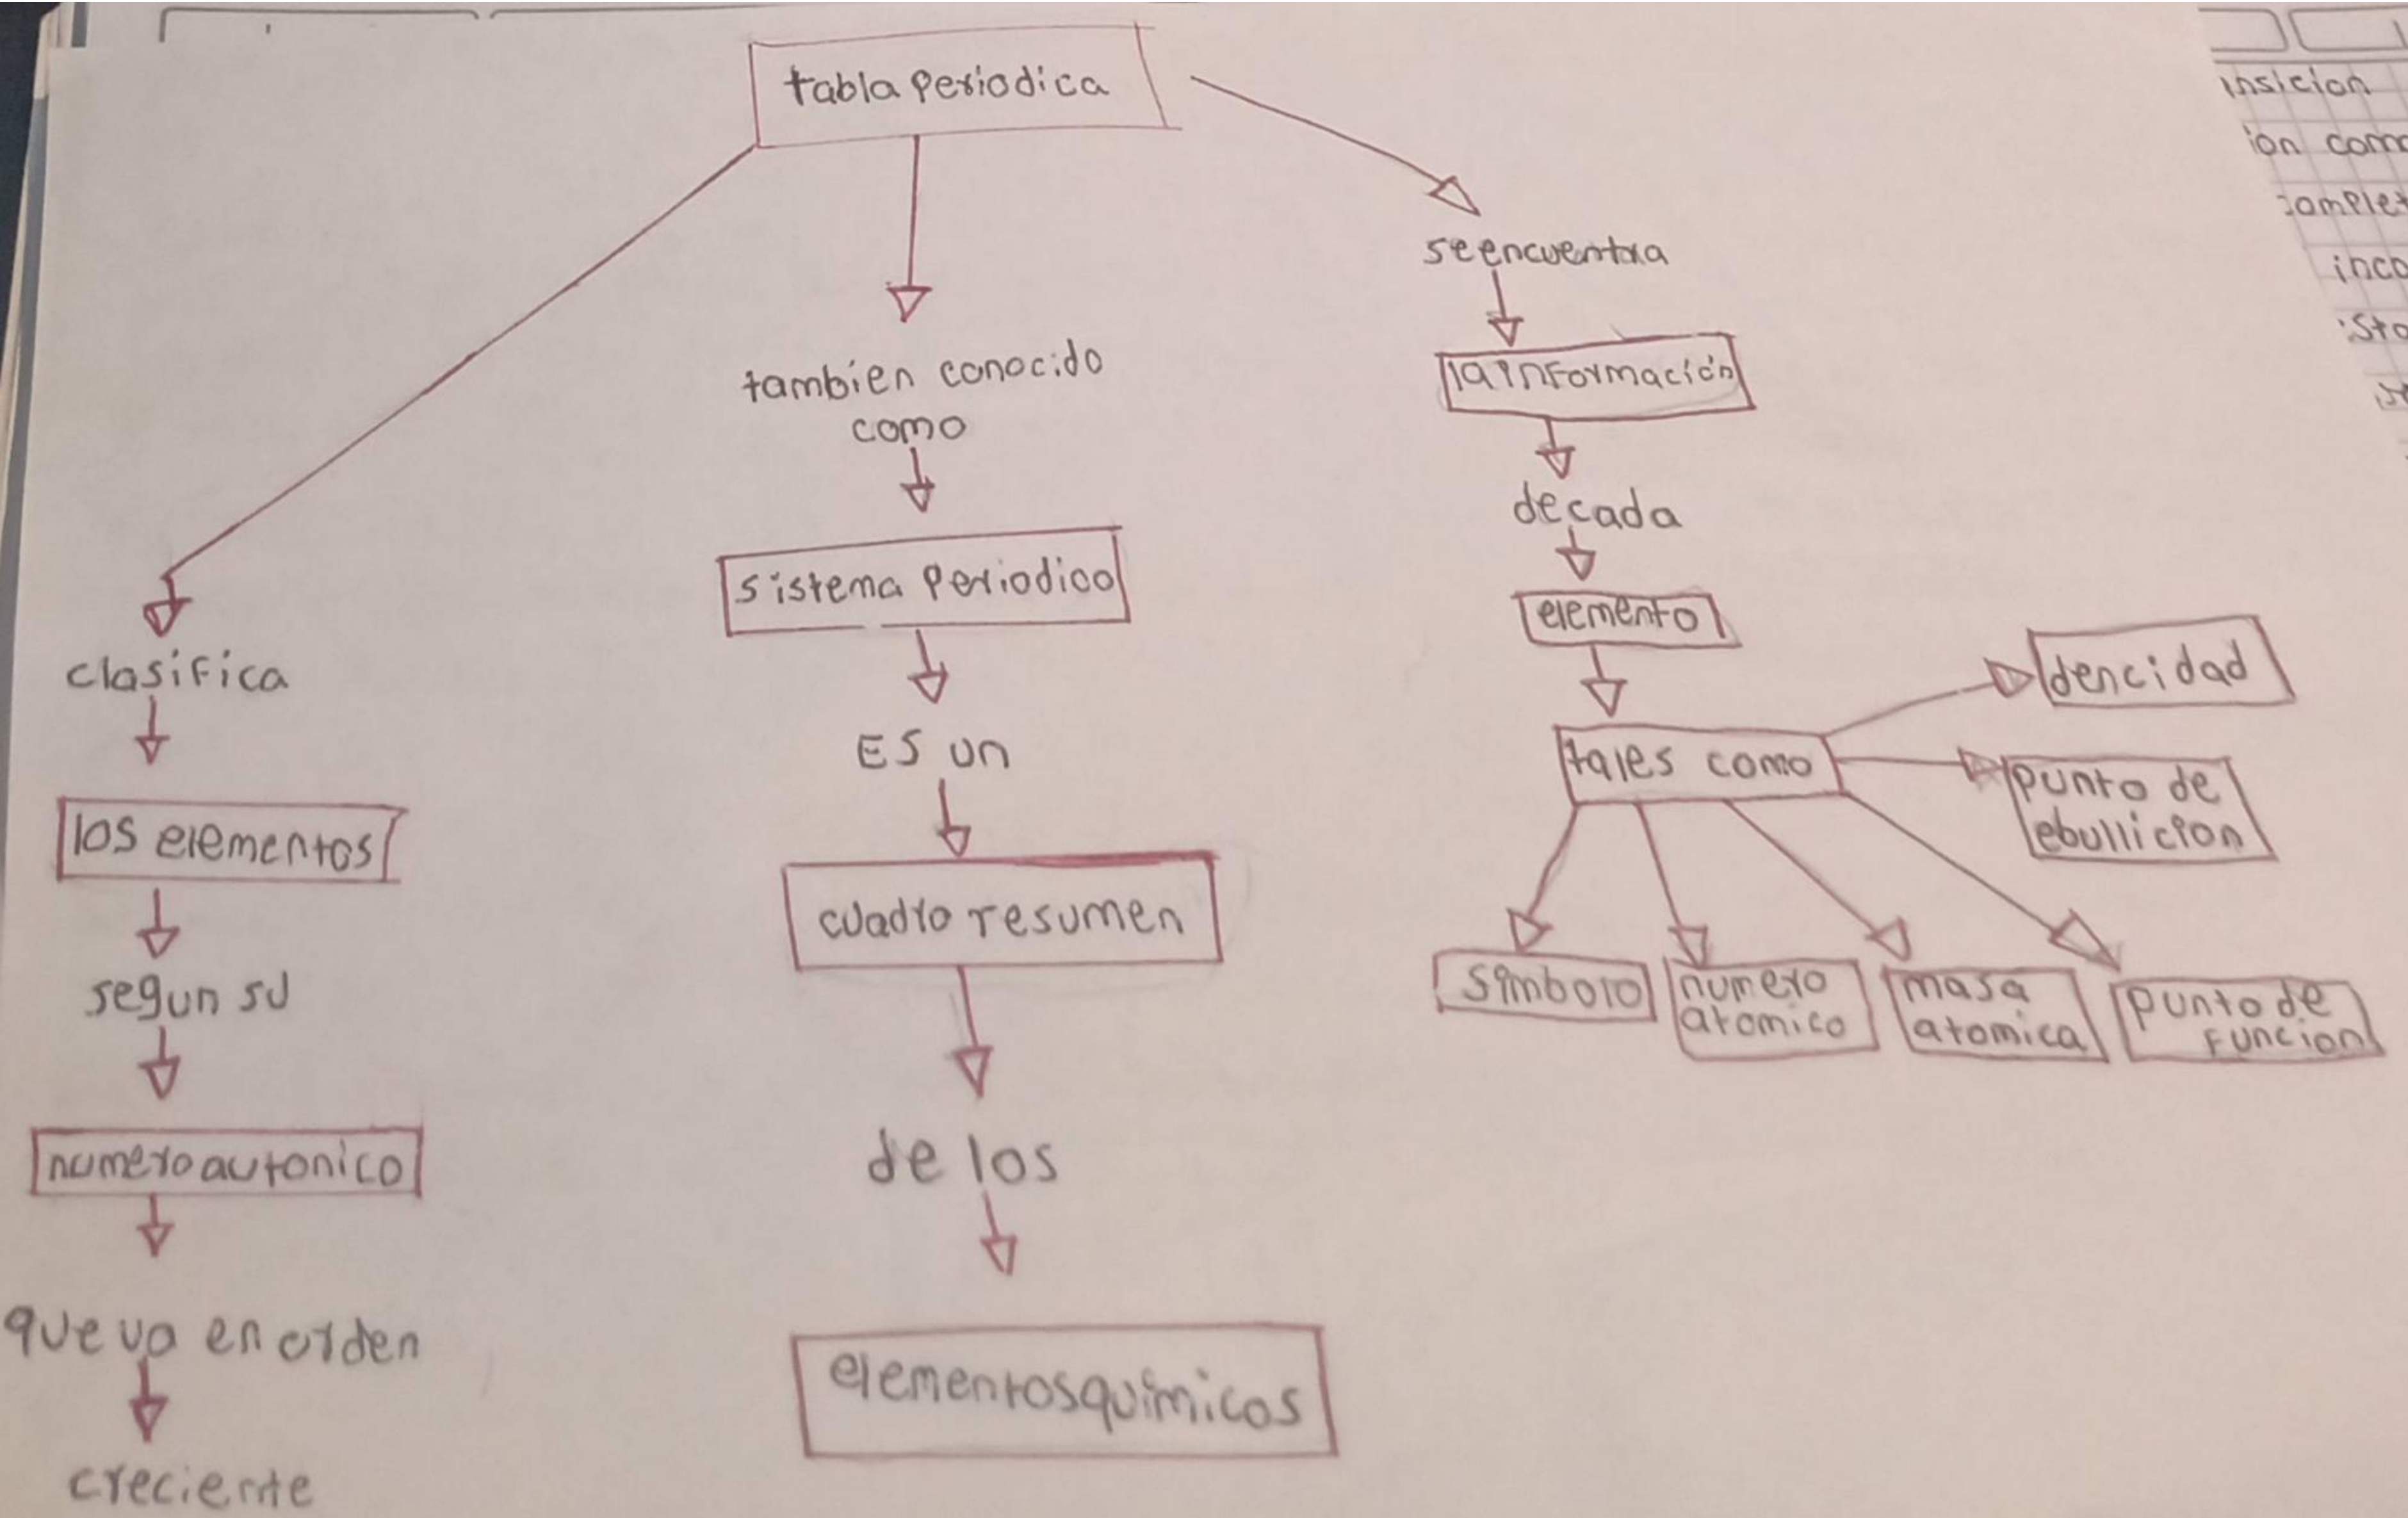 tabla periodica
clasifica
los elementos
segun su
numero autonico
que va en orden
creciente
tambien conocido
como
sistema periodico
ES un
cuadro resumen
de los
elementos quimicos
se encuentra
la información
de cada
elemento
tales como
dencidad
punto de
ebullicion
simbolo
numero
atomico
masa
atomica
punto de
funcion